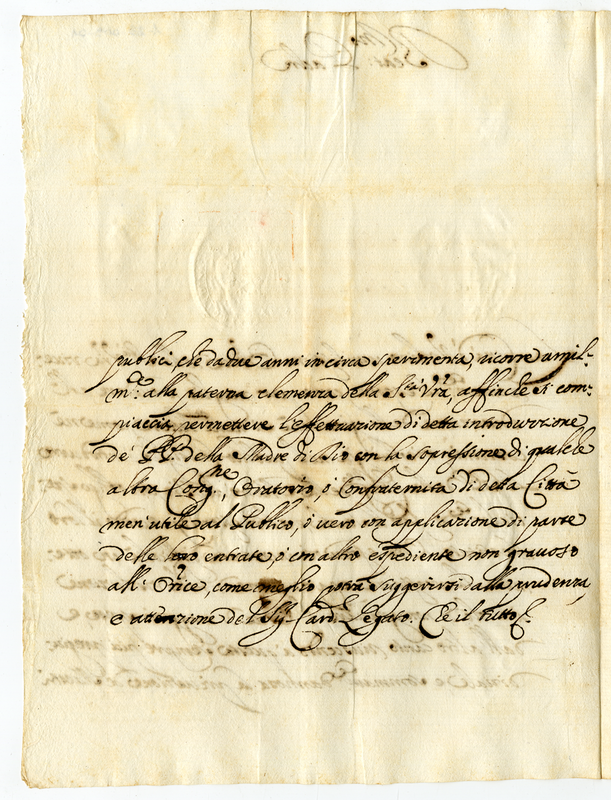 publici, che da due anni in circa sperimenta, ricorre umil-
m.te alla paterna clemenza della S.tà Vrã, affinche si com-
piaccia permettere l'effettuazione di detta introduzzione
de' PP. della Madre di Dio con la sopressione di qualche
altra Cong.ne, Oratorio, ò Confraternita di detta Città
men' utile al Publico, ò vero con applicazione di parte
delle loro entrate, ò con altro espediente non gravoso
all' Orice, come meglio potrà suggerirsi dalla prudenza,
e attenzione del Sig.r Card. Legato. Che il tutto